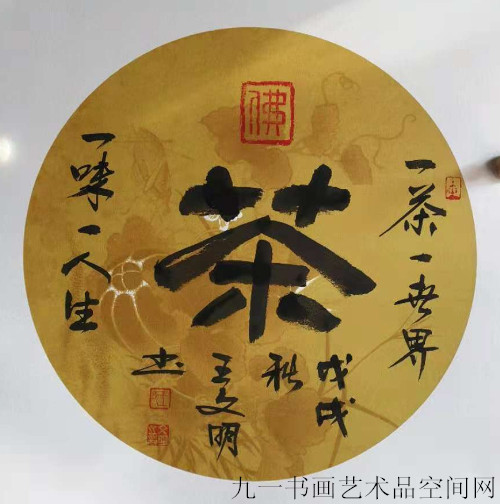 佛
茶
一茶一世界
一味一人生
戊戌
秋
王文明
书
九一书画艺术品空间网